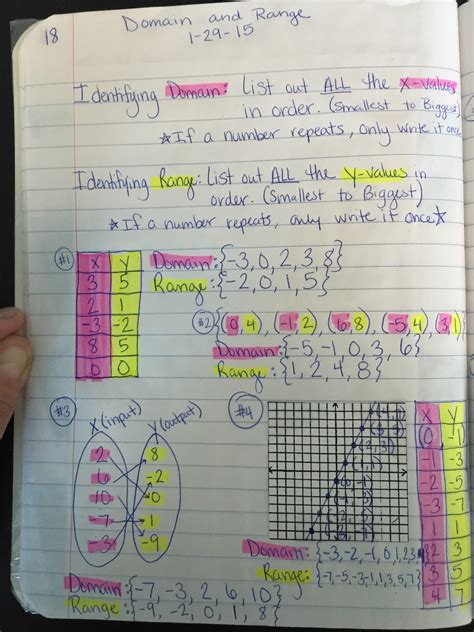 18
Domain and Range
1-29-15
Identifying Domain: List out ALL the X-values
in order. (Smallest to Biggest)
★If a number repeats, only write it once
Identifying Range: List out ALL the y-values in
order. (Smallest to Biggest)
★If a number repeats, only write it once★
#1
X Y
3 5
2 1
-3 -2
8 5
0 0
Domain: {-3, 0, 2, 3, 8}
Range: {-2, 0, 1, 5}
#2 {(0,4), (-1,2), (6,8), (-5,4), (3,1)}
Domain: {-5, -1, 0, 3, 6}
Range: {1, 2, 4, 8}
#3
X (input) Y (output)
2 8
6 -2
10 0
-7 1
-3 -9
Domain: {-7, -3, 2, 6, 10}
Range: {-9, -2, 0, 1, 8}
#4
X Y
0 -1
-1 -3
-2 -5
-3 -7
1 1
2 3
3 5
4 7
Domain: {-3, -2, -1, 0, 1, 2, 3, 4}
Range: {-7, -5, -3, -1, 1, 3, 5, 7}